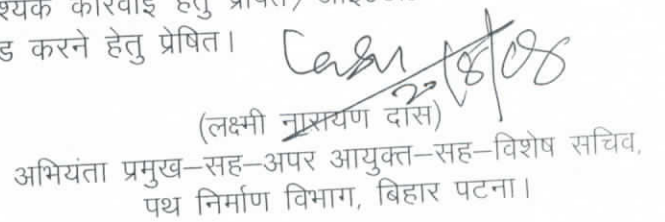 श्यक कार्रवाई हेतु
ड करने हेतु प्रेषित।
(लक्ष्मी नारायण दास)
अभियंता प्रमुख–सह–अपर आयुक्त–सह–विशेष सचिव,
पथ निर्माण विभाग, बिहार पटना।